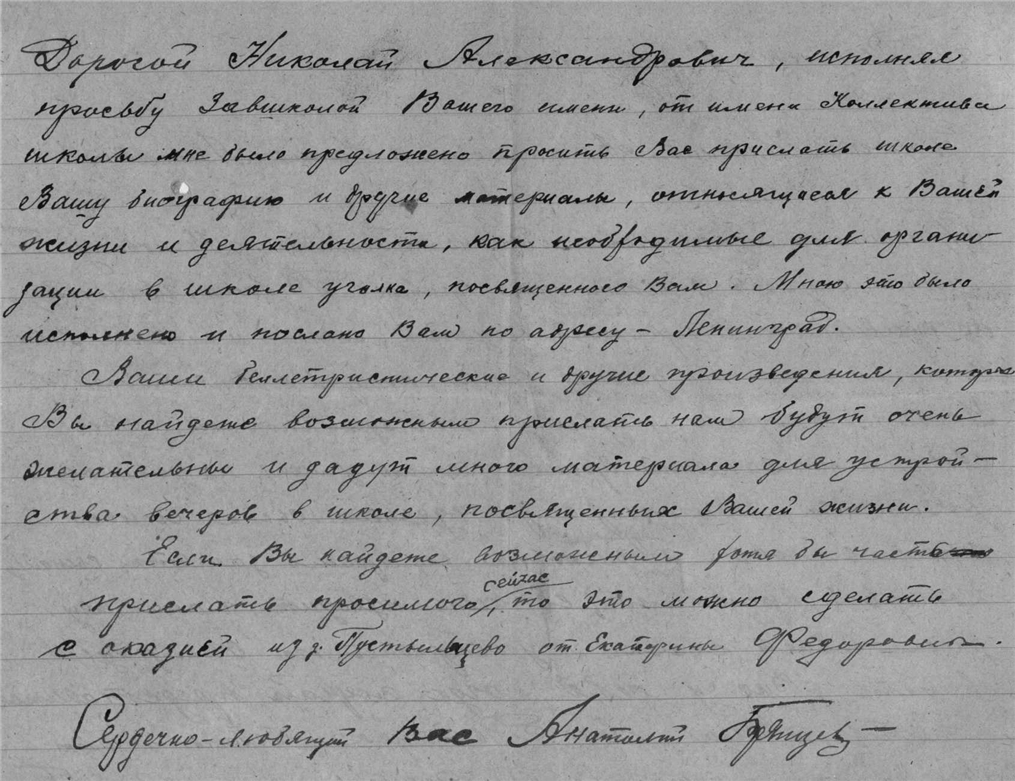 Дорогой Николай Александрович, исполняя
просьбу Завшколой Вашего имени, от имени Коллектива
школы мне было предложено просить Вас прислать школе
Вашу биографию и другие материалы, относящиеся к Вашей
жизни и деятельности, как необходимые для органи-
зации в школе уголка, посвященного Вам. Мною это было
исполнено и послано Вам по адресу - Ленинград.
Ваши беллетристические и другие произведения, которые
Вы найдете возможным прислать нам будут очень
желательны и дадут много материала для устрой-
ства вечеров в школе, посвященных Вашей жизни.
Если Вы найдете возможным хотя бы часть
прислать просимого сейчас, то это можно сделать
с оказией из д. Пустыльцево от Екатерины Федоровны.
Сердечно-любящий Вас Анатолий